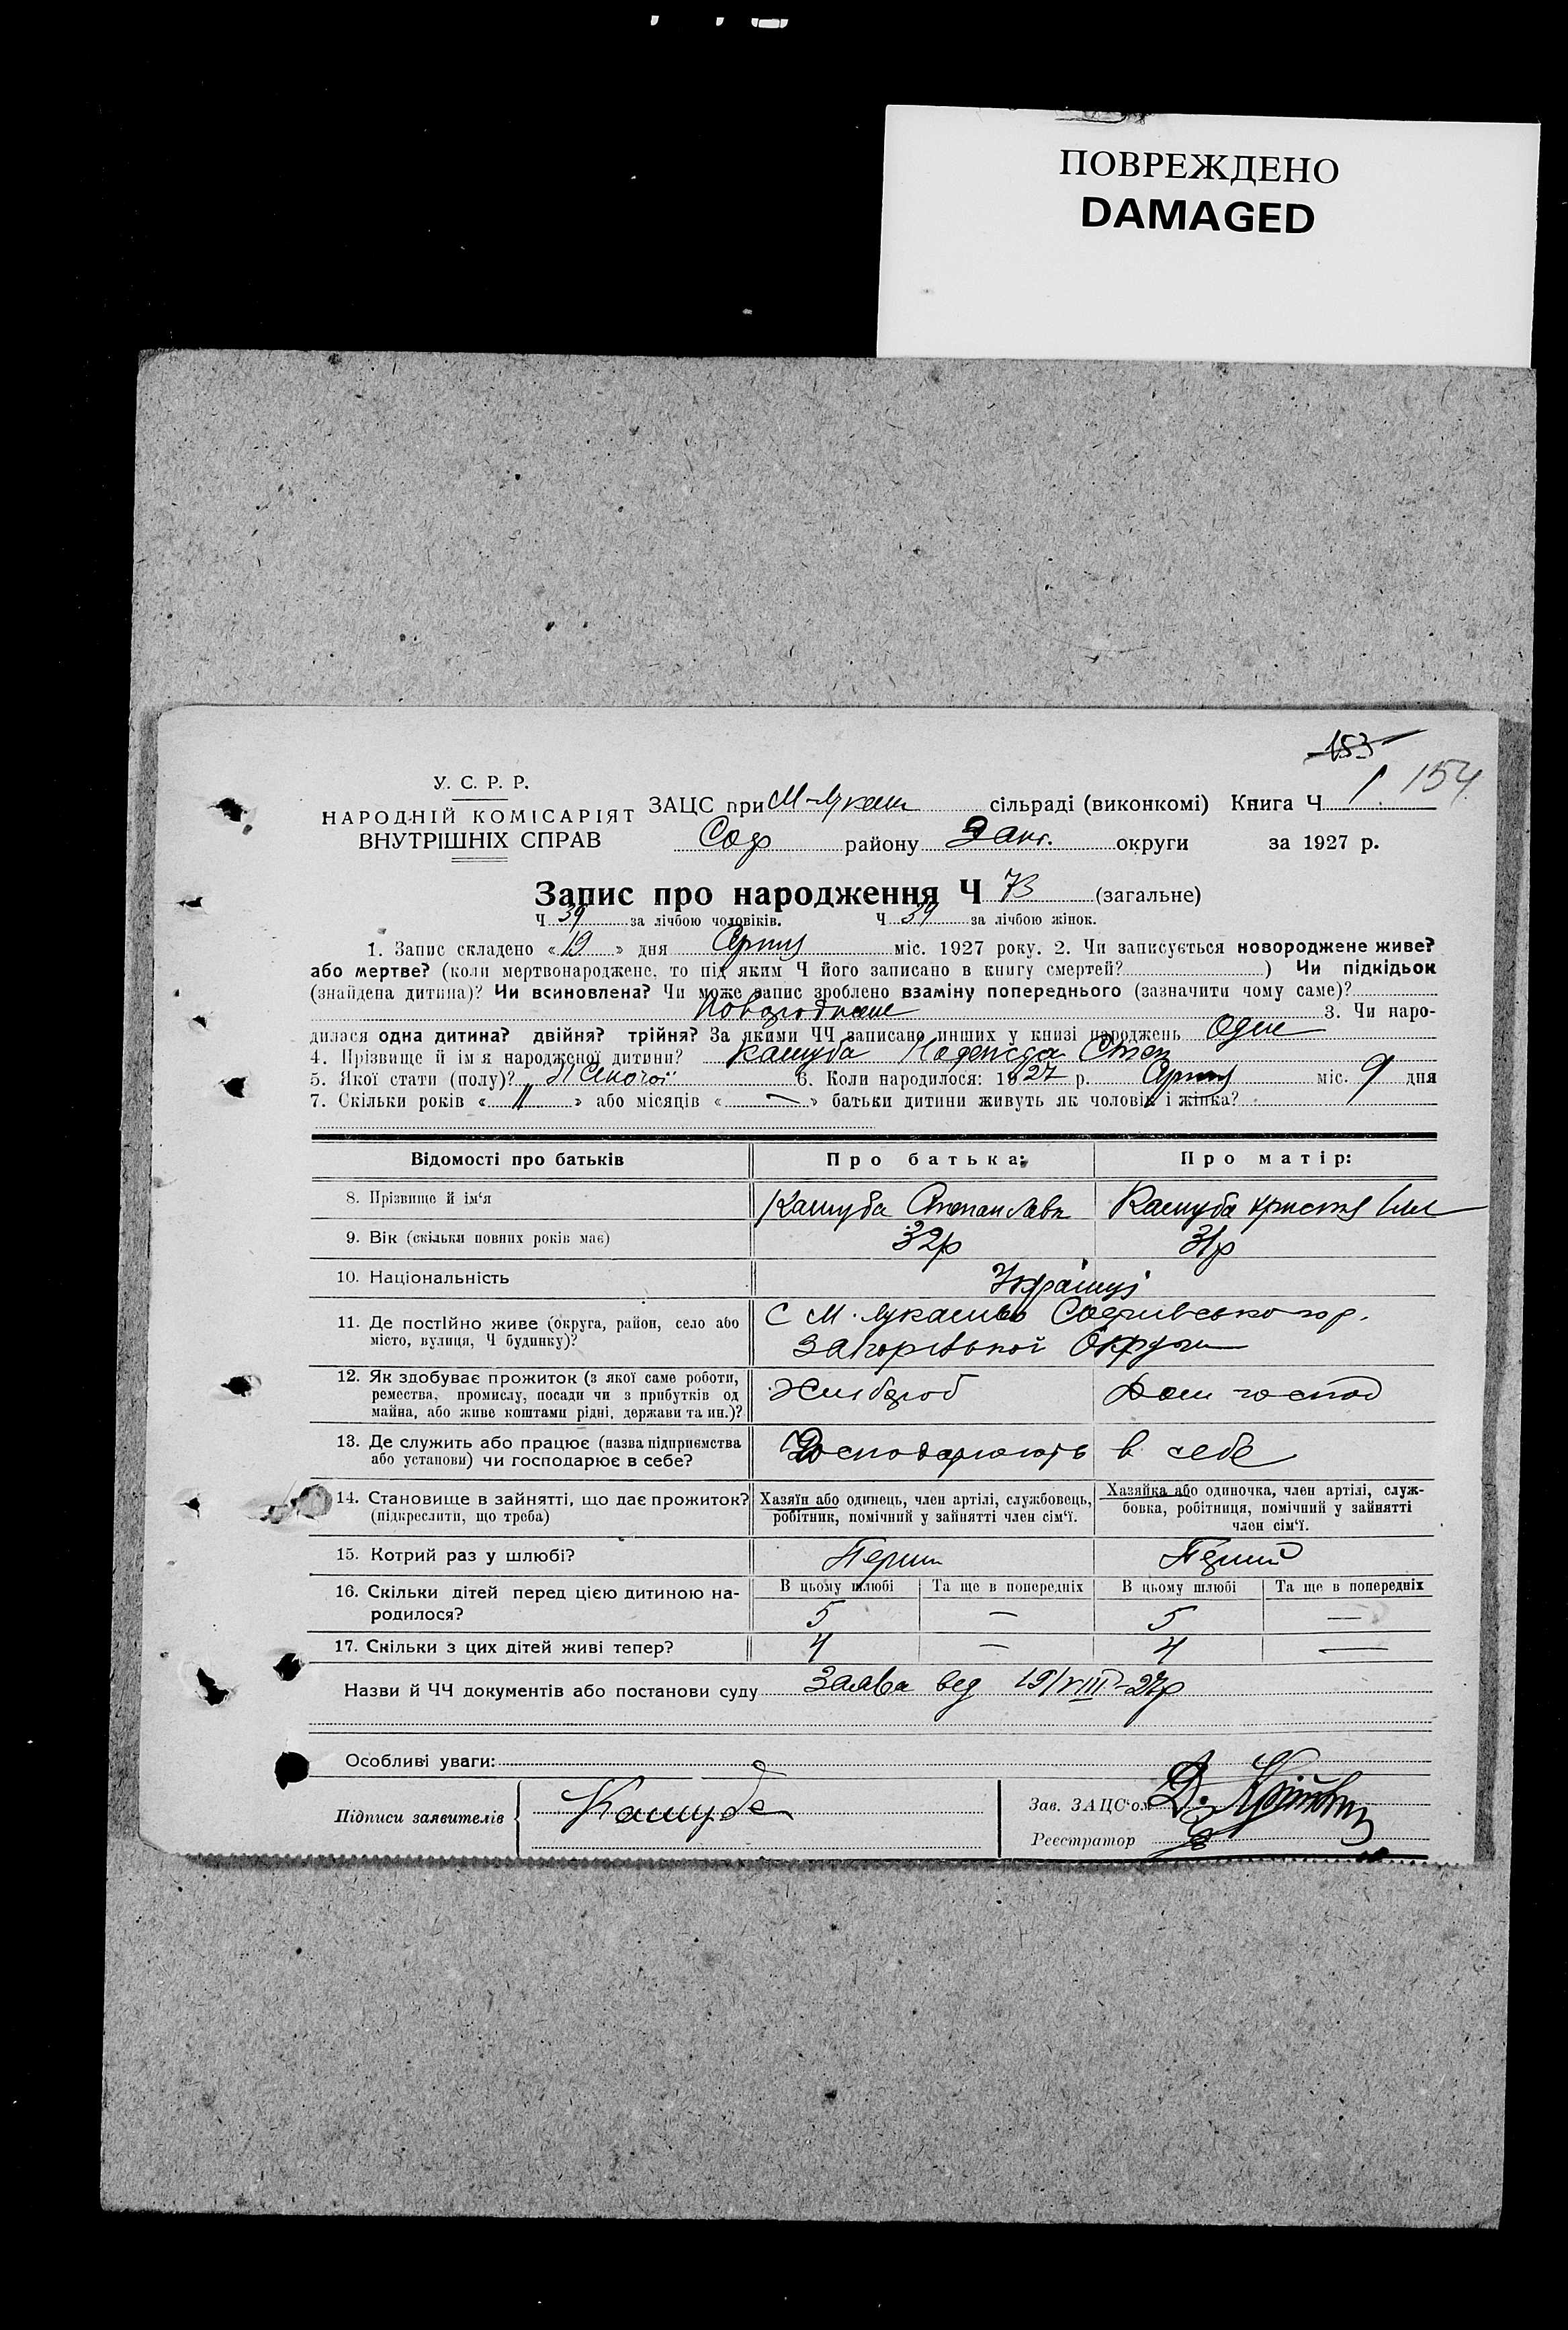 ПОВРЕЖДЕНО
DAMAGED
153
154
У. С. Р. Р.
НАРОДНІЙ КОМІСАРІЯТ
ВНУТРІШНІХ СПРАВ
ЗАЦС при М-Лукаш сільраді (виконкомі) Книга Ч 1
Соф району Зап. округи за 1927 р.
Запис про народження Ч 73 (загальне)
Ч 39 за лічбою чоловіків. Ч 39 за лічбою жінок.
1. Запис складено «19» дня Серпня міс. 1927 року. 2. Чи записується новороджене живе?
або мертве? (коли мертвонароджене, то під яким Ч його записано в книгу смертей?) Чи підкідьок
(знайдена дитина)? Чи всиновлена? Чи може запис зроблено взаміну попереднього (зазначити чому саме)?
3. Чи наро-
дилася одна дитина? двійня? трійня? За якими ЧЧ записано инших у книзі народжень Одне
4. Прізвище й ім'я народженої дитини? Кашуба Надежда Степ
5. Якої статі (полу)? Жіночої 6. Коли народилося: 1927 р. Серпня міс. 9 дня
7. Скільки років « 11 » або місяців « — » батьки дитини живуть як чоловік і жінка?
Відомості про батьків Про батька: Про матір:
8. Прізвище й ім'я Кашуба Степан Кашуба Христя
9. Вік (скільки повних років має) 32р 31р
10. Національність Українці
11. Де постійно живе (округа, район, село або
місто, вулиця, Ч будинку)?
С М. Лукашево Софиівського р.
Запорізької Округи
12. Як здобуває прожиток (з якої саме роботи,
ремества, промислу, посади чи з прибутків од
майна, або живе коштами рідні, держави та ин.)?
Хлібороб Дом господ
13. Де служить або працює (назва підприємства
або установи) чи господарює в себе?
Господарюють в себе
14. Становище в зайнятті, що дає прожиток?
(підкреслити, що треба)
Хазяїн або одинець, член артілі, службовець,
робітник, помічний у зайнятті член сім'ї.
Хазяйка або одиночка, член артілі, служ-
бовка, робітниця, помічний у зайнятті
член сім'ї.
15. Котрий раз у шлюбі? Перший Перший
16. Скільки дітей перед цією дитиною на-
родилося?
В цьому шлюбі Та ще в попередніх В цьому шлюбі Та ще в попередніх
5 — 5 —
17. Скільки з цих дітей живі тепер? 4 — 4 —
Назви й ЧЧ документів або постанови суду Заява вед 19/VIII-27р
Особливі уваги:
Підписи заявителів Кашуба
Зав. ЗАЦС'ом
Реєстратор